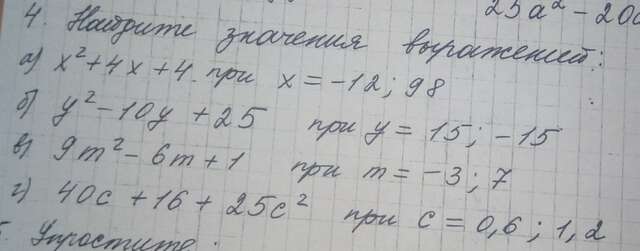 25a² - 20
4. Найдите значения выражений:
а) x² + 4x + 4 при x = -12; 98
б) y² - 10y + 25 при y = 15; -15
в) 9m² - 6m + 1 при m = -3; 7
г) 40c + 16 + 25c² при c = 0,6; 1,2
Упростите: